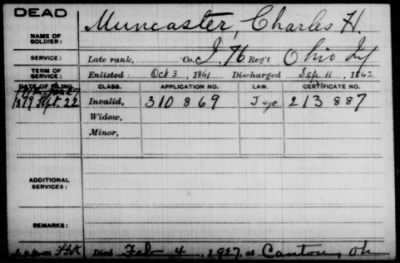 DEAD
NAME OF SOLDIER: Muncaster, Charles H.
SERVICE: Late rank, Co. I, 76 Reg't Ohio Inf
TERM OF SERVICE: Enlisted Oct 3, 1861 Discharged Sep 11, 1862
DATE OF FILING. CLASS. APPLICATION NO. LAW. CERTIFICATE NO.
1879 Sept. 22 Invalid, 310869 213887
Widow,
Minor,
ADDITIONAL SERVICES:
REMARKS:
Died Feb 4, 1927, at Canton, Oh